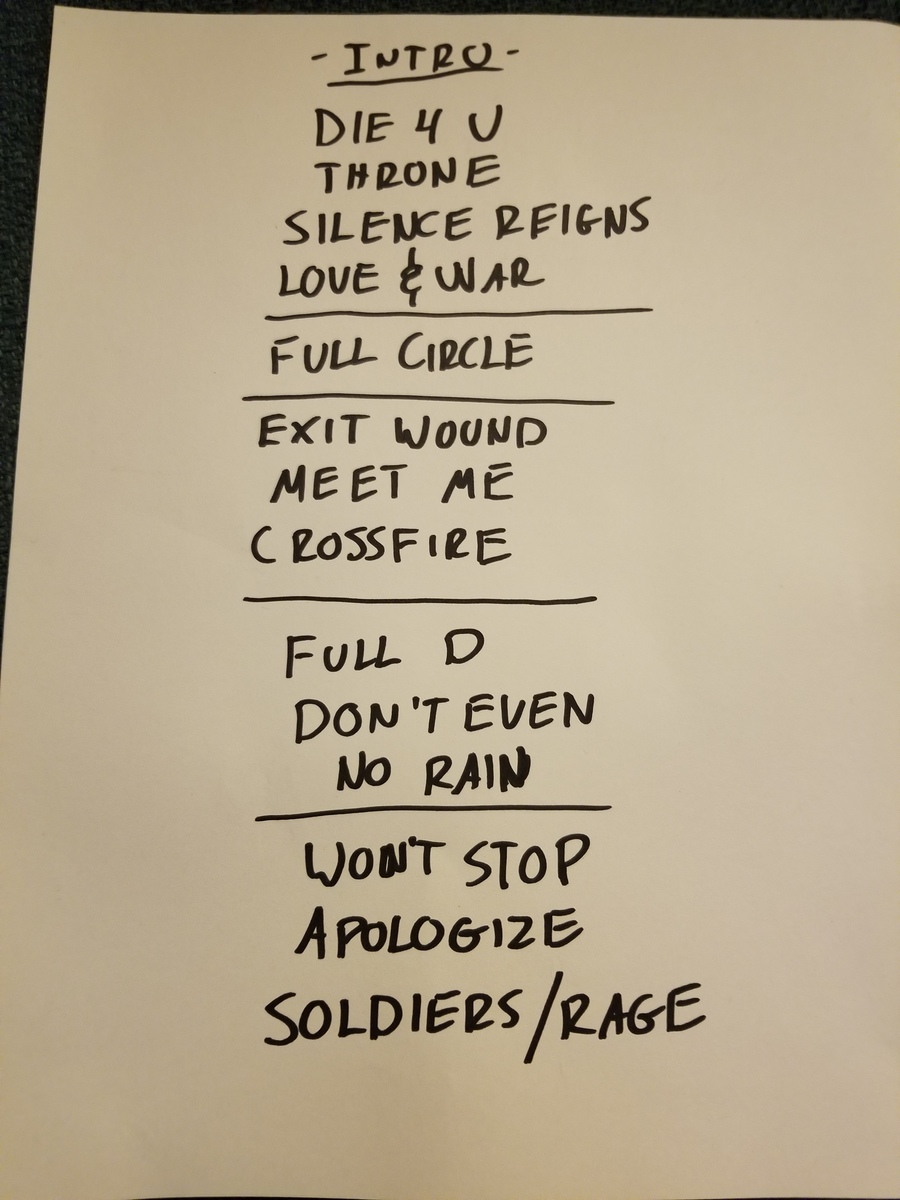 - INTRO -
DIE 4 U
THRONE
SILENCE REIGNS
LOVE & WAR
FULL CIRCLE
EXIT WOUND
MEET ME
CROSSFIRE
FULL D
DON'T EVEN
NO RAIN
WON'T STOP
APOLOGIZE
SOLDIERS/RAGE